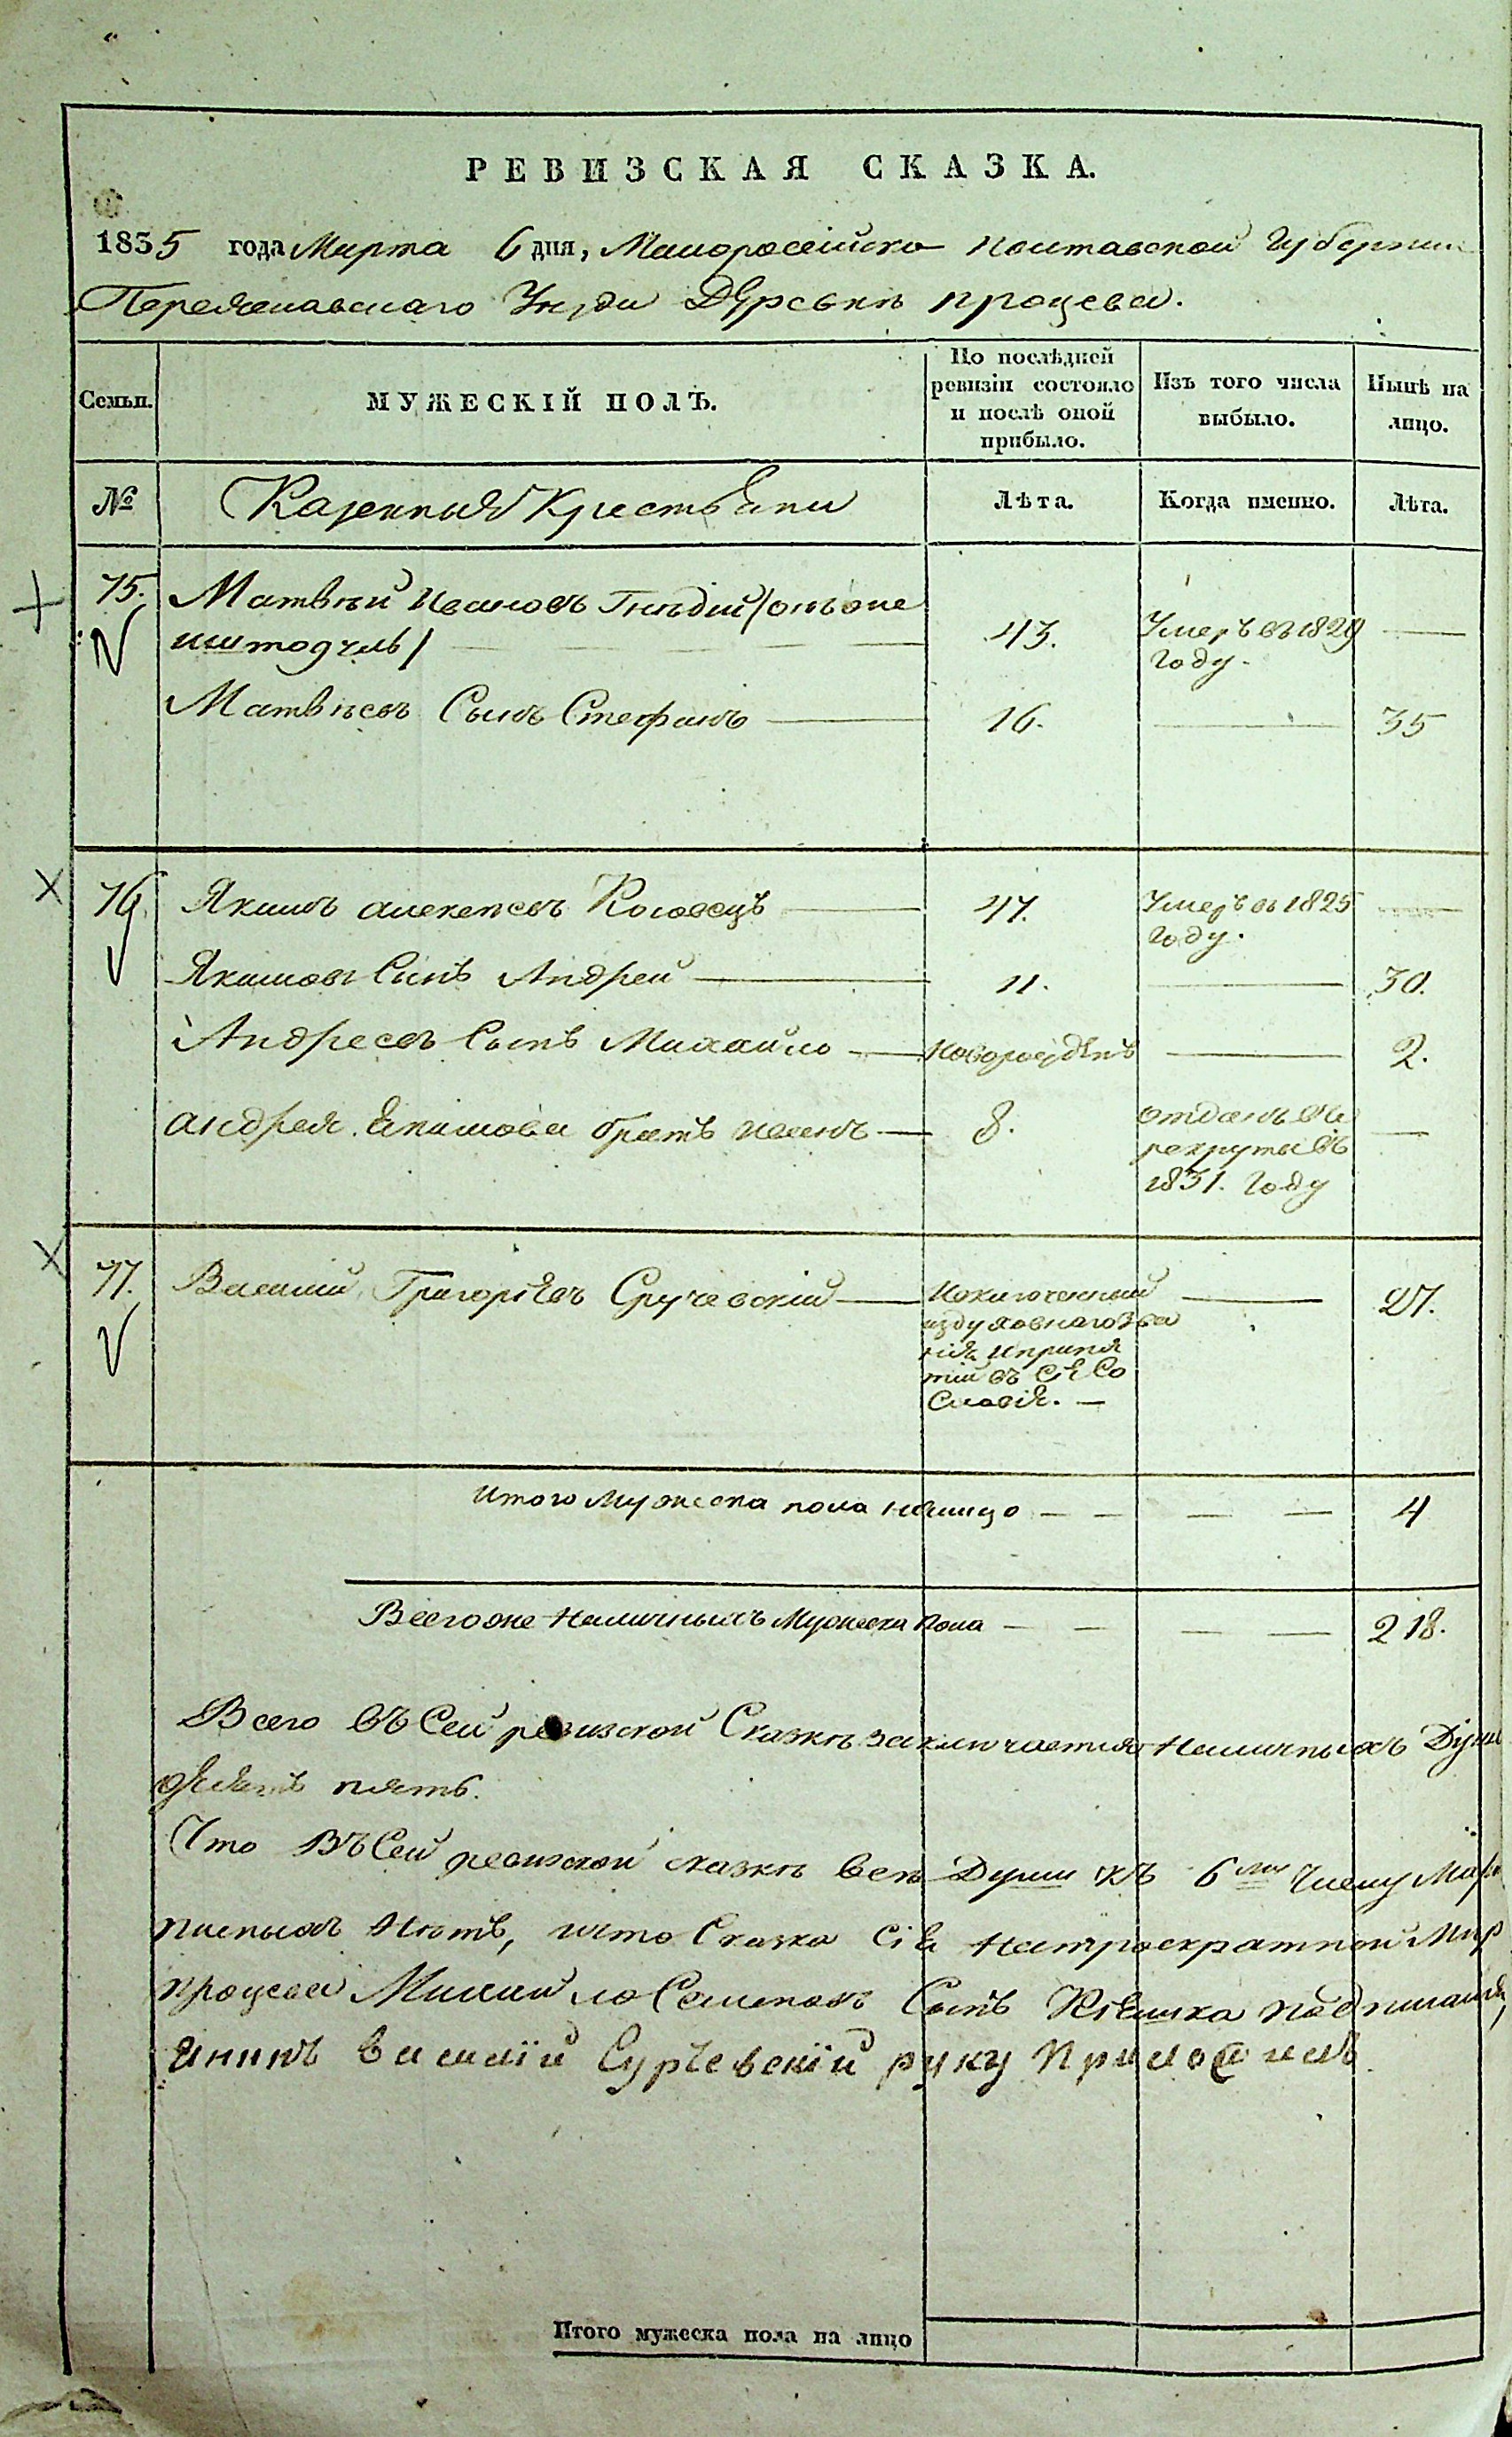 РЕВИЗСКАЯ СКАЗКА.
1835 года Марта 6 дня, Малоросійско Полтавской Губерніи
Переяславскаго Уезда Деревни Процева.
Семьи.
МУЖЕСКІЙ ПОЛЪ.
По послѣдней ревизіи состояло и послѣ оной прибыло.
Изъ того числа выбыло.
Нынѣ на лицо.
№
Казенныя Крестьяни
Лѣта.
Когда именно.
Лѣта.
75. Матвѣй Ивановъ Гнѣдій /онъ же
43. Умеръ въ 1829 году. —
Матвѣевъ Сынъ Стефанъ — 16. — 35
76. Якимъ Алексѣевъ — 47. Умеръ въ 1825 году. —
Якимовъ Сынъ Андрей — 11. — 30.
Андреевъ Сынъ Михайло — новорожденъ — 2.
Андрея Якимова братъ Иванъ — 8. отданъ въ рекруты въ 1831. году —
77. Василій Григоріевъ — Исключенный — 27.
из духовного зва
нія и приня
тій въ сіе Со
словія. —
Итого Мужеска пола налицо — — — — 4
Всегоже Наличныхъ Мужеска Пола — — — — 218.
Всего въ Сей ревизской Сказкѣ заключается Наличныхъ Душъ
пять.
Что въ Сей ревизской сказкѣ всѣ Души къ 6 Числу Мар
нѣтъ, что Сказка Сія
Процева Михайло Сынъ
Василій Сурчевскій руку Приложилъ
Итого мужеска пола на лицо